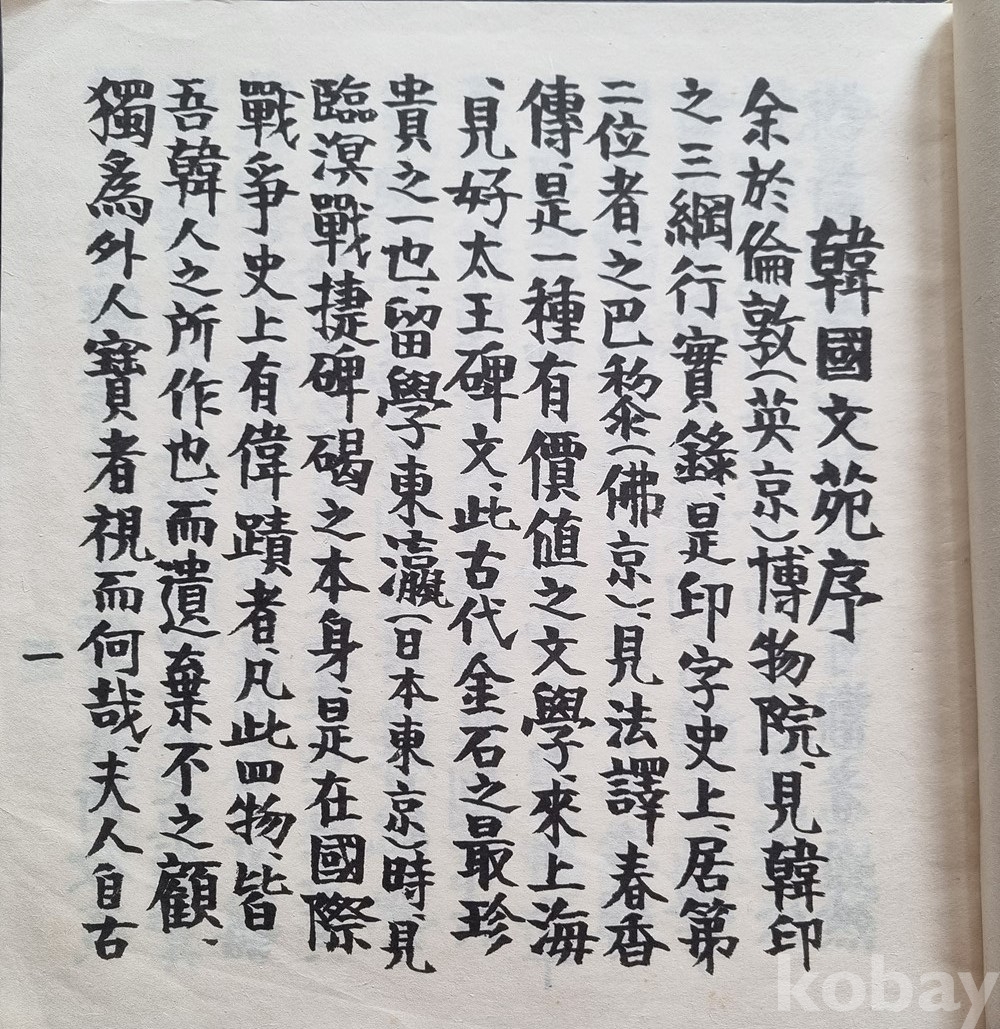 韓國文苑序
余於倫敦(英京)博物院、見韓印
之三綱行實錄、是印字史上、居第
二位者、之巴黎(佛京)、見法譯春香
傳、是一種有價値之文學、來上海
、見好太王碑文、此古代金石之最珍
貴之一也、留學東瀛(日本東京)時、見
臨溟戰捷碑碣之本身、是在國際
戰爭史上有偉蹟者、凡此四物、皆
吾韓人之所作也、而遺棄不之顧、
獨爲外人寶者視而何哉、夫人自古
一
kobay